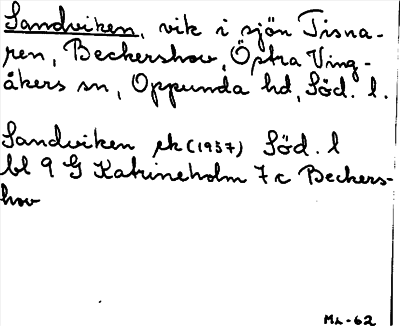 Sandviken, vik i sjön Tisna-
ren, Beckershov, Östra Ving-
åkers sn, Oppunda hd, Söd. l.
Sandviken ek (1937) Söd. l
bl 9 G Katrineholm 7 c Beckers-
hov
ML-62